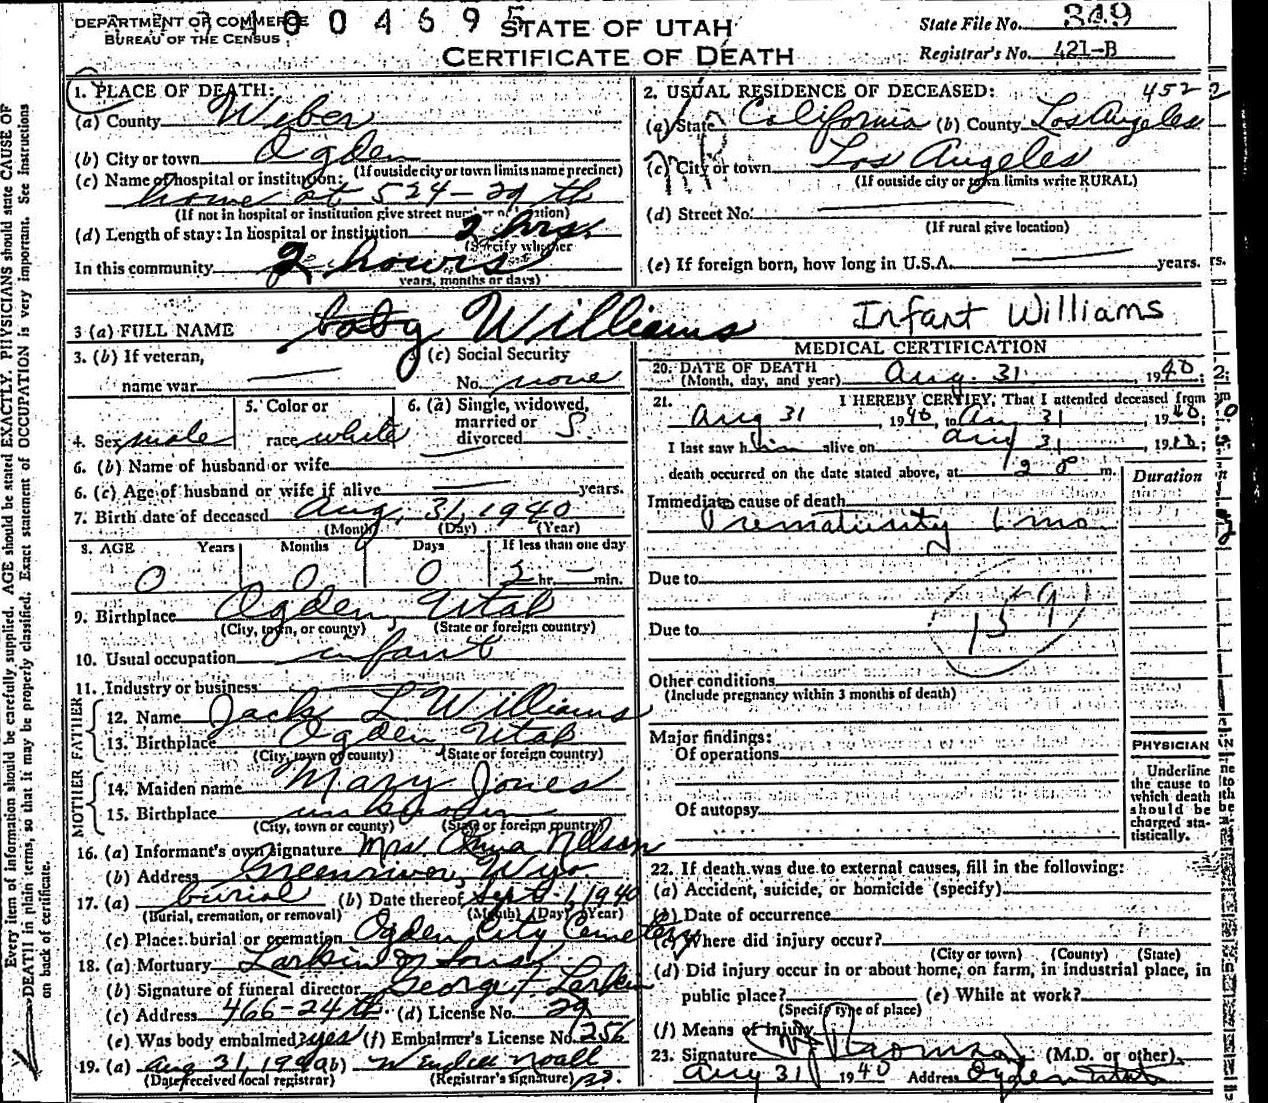 DEPARTMENT OF COMMERCE
BUREAU OF THE CENSUS
4004695
STATE OF UTAH
CERTIFICATE OF DEATH
State File No. 349
Registrar's No. 421-B
1. PLACE OF DEATH:
(a) County Weber
(b) City or town Ogden
(If outside city or town limits name precinct)
(c) Name of hospital or institution:
home at 524-29th
(If not in hospital or institution give street number or location)
(d) Length of stay: In hospital or institution 2 hrs.
(Specify whether
In this community 2 hours
years, months or days)
2. USUAL RESIDENCE OF DECEASED: 452
(a) State California (b) County Los Angeles
(c) City or town Los Angeles
(If outside city or town limits write RURAL)
(d) Street No.
(If rural give location)
(e) If foreign born, how long in U.S.A. years.
3 (a) FULL NAME baby Williams Infant Williams
3. (b) If veteran,
name war
(c) Social Security
No. none
4. Sex male
5. Color or
race white
6. (a) Single, widowed,
married or
divorced S.
6. (b) Name of husband or wife
6. (c) Age of husband or wife if alive years.
7. Birth date of deceased Aug. 31, 1940
(Month) (Day) (Year)
8. AGE Years Months Days If less than one day
0 0 0 2 hr. — min.
9. Birthplace Ogden Utah
(City, town, or county) (State or foreign country)
10. Usual occupation infant
11. Industry or business
FATHER
12. Name Jack L Williams
13. Birthplace Ogden Utah
(City, town or county) (State or foreign country)
MOTHER
14. Maiden name Mary Jones
15. Birthplace unknown
(City, town or county) (State or foreign country)
16. (a) Informant's own signature Mrs. Nelson
(b) Address Greenriver, Wyo.
17. (a) burial (b) Date thereof Sept. 1, 1940
(Burial, cremation, or removal) (Month) (Day) (Year)
(c) Place: burial or cremation Ogden City Cemetery
18. (a) Mortuary Larkin & Sons
(b) Signature of funeral director George F Larkin
(c) Address 466-24th. (d) License No. 29
(e) Was body embalmed? yes (f) Embalmer's License No. 256
19. (a) Aug 31, 1940 (b) Wendell Noall
(Date received local registrar) (Registrar's signature)
MEDICAL CERTIFICATION
20. DATE OF DEATH
(Month, day, and year) Aug. 31, 1940;
21. I HEREBY CERTIFY, That I attended deceased from
Aug 31 1940, to Aug 31 1940;
I last saw him alive on Aug 31, 1940;
death occurred on the date stated above, at m.
Duration
Immediate cause of death
Prematurity 1 mo.
Due to
159
Due to
Other conditions
(Include pregnancy within 3 months of death)
Major findings:
Of operations
Of autopsy
PHYSICIAN
Underline
the cause to
which death
should be
charged sta-
tistically.
22. If death was due to external causes, fill in the following:
(a) Accident, suicide, or homicide (specify)
(b) Date of occurrence
(c) Where did injury occur?
(City or town) (County) (State)
(d) Did injury occur in or about home, on farm, in industrial place, in
public place? (e) While at work?
(Specify type of place)
(f) Means of injury
23. Signature (M.D. or other)
Aug 31 1940 Address Ogden Utah
Every item of information should be carefully supplied. AGE should be stated EXACTLY. PHYSICIANS should state CAUSE OF
DEATH in plain terms, so that it may be properly classified. Exact statement of OCCUPATION is very important. See instructions
on back of certificate.